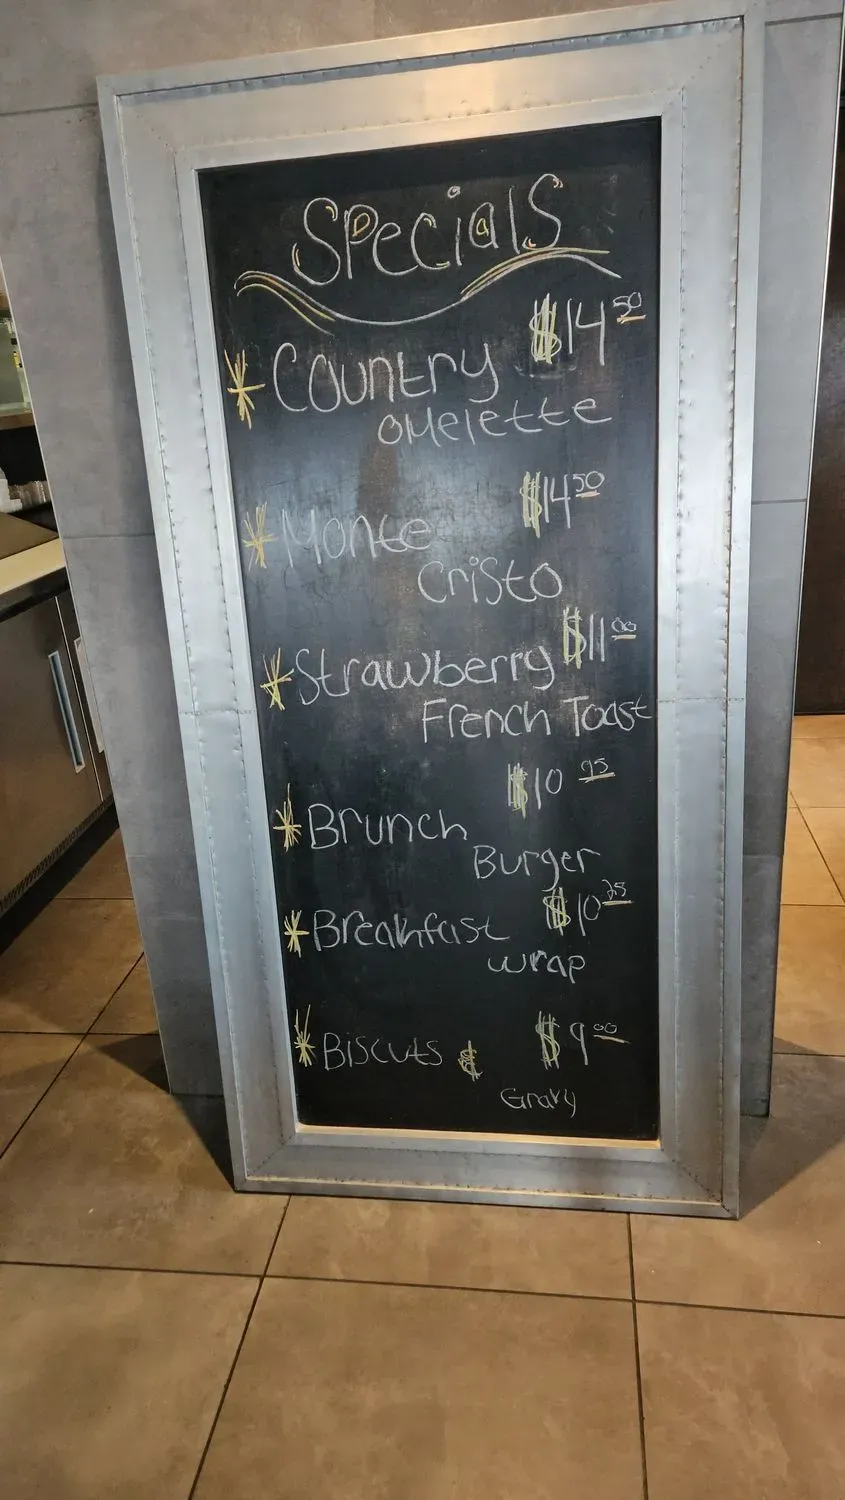 Specials
* Country $14.50
omelette
* Monte $14.50
Cristo
* Strawberry $11.00
French Toast
$10.95
* Brunch
Burger
* Breakfast $10.25
wrap
* Biscuts & $9.00
Gravy